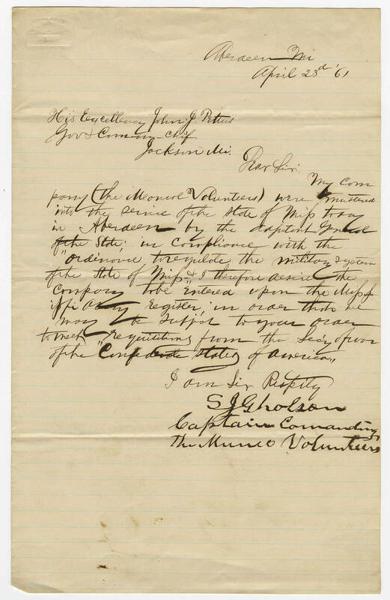 Aberdeen Mi
April 23d '61
His Excellency John J Pettus
Gov & Comm
Jackson Mi.
Dear Sir.
My Com
pany (the Monroe Volunteers) were mustered
into the service of the State of Miss today
in Aberdeen by the
of the State, in compliance with the
"ordinance to regulate the military system
of the State of Miss" & I therefore desire the
company to be entered upon the Miss
Army Register, in order that we
may be subject to your order
to meet "requisitions from the Secy of war
of the Confederate States of America"
I am Sir Respctly
S J Gholson
Captain Comanding
The Munro Volunteers